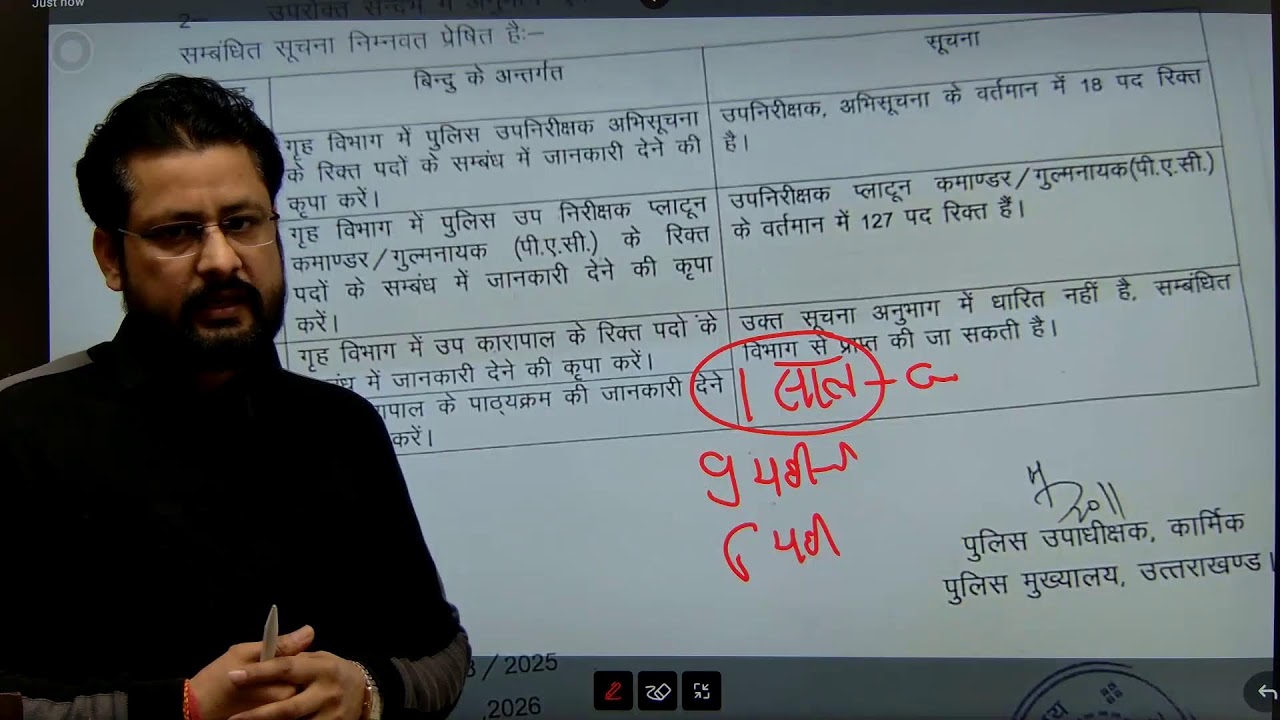 Just now
2— उपरोक्त सन्दर्भ में
सम्बंधित सूचना निम्नवत प्रेषित हैः—
बिन्दु के अन्तर्गत
सूचना
गृह विभाग में पुलिस उपनिरीक्षक अभिसूचना
के रिक्त पदों के सम्बंध में जानकारी देने की
कृपा करें।
उपनिरीक्षक, अभिसूचना के वर्तमान में 18 पद रिक्त
है।
गृह विभाग में पुलिस उप निरीक्षक प्लाटून
कमाण्डर/गुल्मनायक (पी.ए.सी.) के रिक्त
पदों के सम्बंध में जानकारी देने की कृपा
करें।
उपनिरीक्षक प्लाटून कमाण्डर/गुल्मनायक(पी.ए.सी.)
के वर्तमान में 127 पद रिक्त हैं।
गृह विभाग में उप कारापाल के रिक्त पदो के
बंध में जानकारी देने की कृपा करें।
उक्त सूचना अनुभाग में धारित नहीं है, सम्बंधित
विभाग से प्राप्त की जा सकती है।
रापाल के पाठ्यक्रम की जानकारी देने
करें।
1 साल
पुलिस उपाधीक्षक, कार्मिक
पुलिस मुख्यालय, उत्तराखण्ड।
/ 2025
,2026